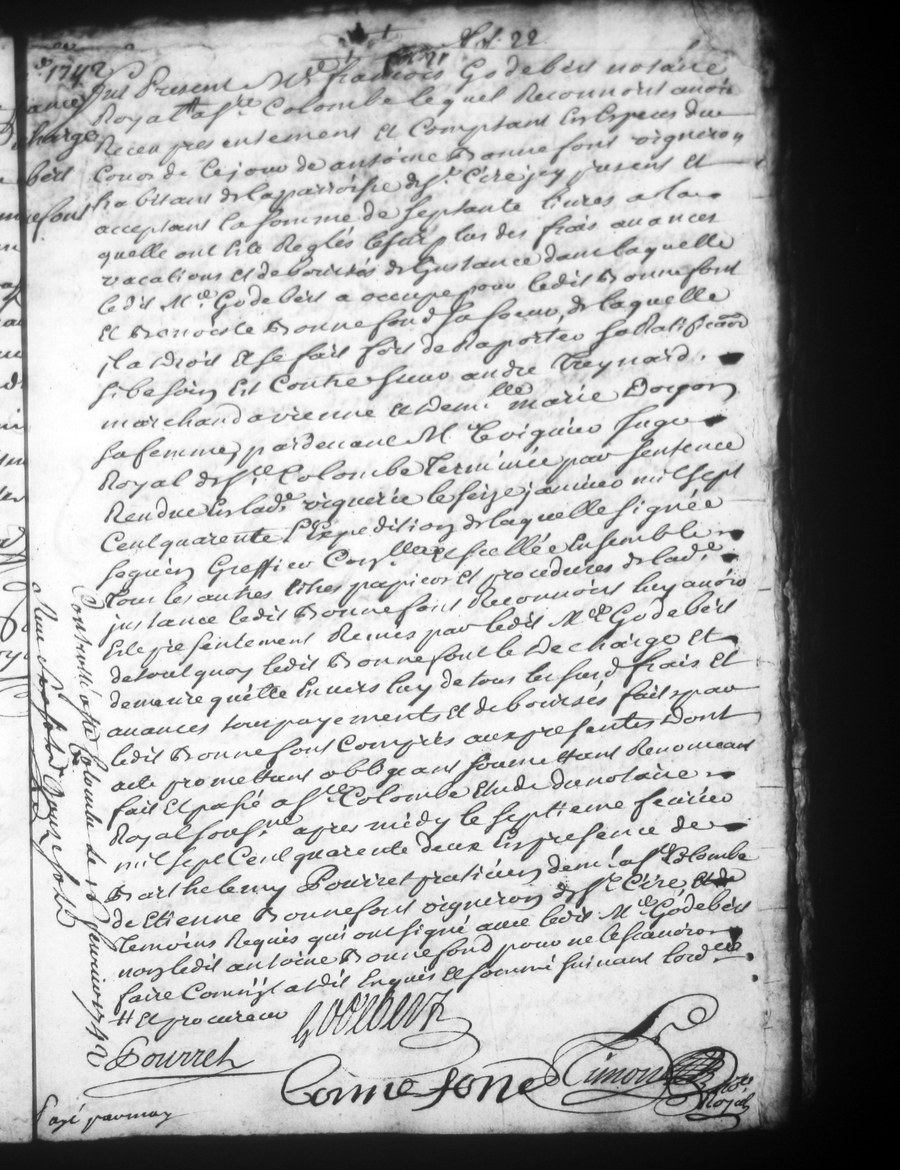 1742
fut Present Me françois Godebert notaire
Royal # a Ste Colombe lequel Reconnoist avoir
Receu presentement et Comptant En Especes du
Cours de Ce jour de antoine Bonnefont vigneron
habitant de la parroisse de St Cire icy present et
acceptant la somme de septante livres a la
quelle ont Ete Reglés le surplus des frais avances
vacations et deboursés de l'instance dans laquelle
ledit Me Godebert a occupé pour ledit Bonnefont
et Benoiste Bonnefond sa soeur, de laquelle
il a droit et se fait fort de Raporter sa Ratification
si besoin Est Contre sieur andre Treynard
marchand a vienne et Demlle marie
sa femme, pardevant M. le viguier juge
Royal de Ste Colombe Terminée par sentence
Rendue En lade viguerie le seize janvier mil sept
Cent quarente l'Expedition de laquelle signée
seguin Greffier Conlle et scellée Ensemble
Tous les autres titres papiers et procedures de lade
instance ledit Bonnefont Reconnoist luy avoir
Ete presentement Remis par ledit Me Godebert
de tout quoy ledit Bonnefont le Decharge et
demeure quitte Envers luy de tous lesd frais et
avances tous payements et deboursés faits par
ledit Bonnefont Compris aux presentes Dont
acte promettant obligeant soumettant Renonceant
fait et passé a Ste Colombe Etude du notaire
Royal sousne apres midy le septieme fevrier
mil sept Cent quarente deux En presence de
Barthelemy Pourret praticien demt a Ste Colombe
de Etienne Bonnefont vigneron de St Cire
Temoins Requis qui ont signé avec ledit Me Godebert
non ledit antoine Bonnefond pour ne le scavoir
faire Comme il a dit Enquis et sommé suivant lordce
# et procureur
Godebert
Pourret
Bonnefond
Simon
Nore
Royal
Controllé a Ste Colombe le fevrier 1742
Reçu
payé par moy